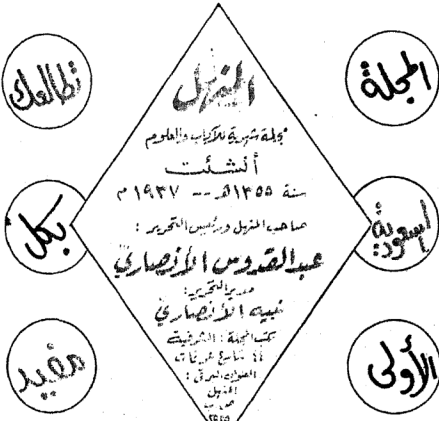 المجلة
السعودية
الأولى
تطالعك
بكل
مفيد
المنهل
مجلة شهرية للآداب والعلوم
أنشئت
سنة ١٣٥٥هـ -- ١٩٣٧ م
صاحب المنهل ورئيس التحرير :
عبد القدوس الأنصاري
مدير التحرير:
نبيه الأنصاري
مكتب المجلة : الشرفية
شارع عرفات
العنوان البرقي :
المنهل
ص ب